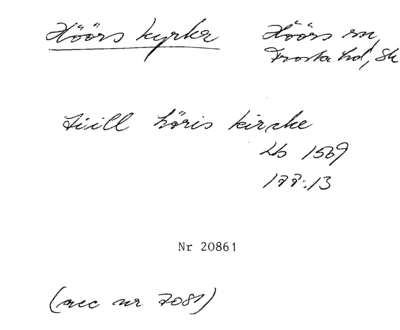 Höörs kyrka
Höörs sn,
Frosta hd, Sk
tiill höris kirche
Lb 1569
177:13
Nr 20861
(acc nr 7081)